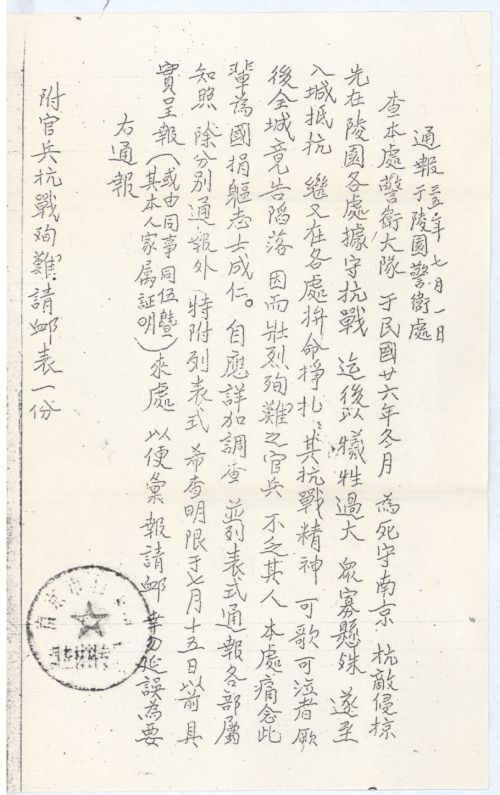 通報 卅五年七月一日
于陵園警衛處
查本處警衛大隊 于民國廿六年冬月 為死守南京 抗敵侵掠
先在陵園各處據守抗戰 迄後以犧牲過大 眾寡懸殊 遂至
入城抵抗 繼又在各處拚命掙扎 其抗戰精神 可歌可泣者 厥
後全城竟告陷落 因而壯烈殉難之官兵 不乏其人 本處痛念此
輩為國捐軀志士成仁。自應詳加調查 並列表式通報各部屬
知照 除分別通報外 特附列表式 希查明限于七月十五日以前 具
實呈報(或由同事同伍暨其本人家属証明)來處 以便彙報請卹 幸勿延誤為要
右通報
附官兵抗戰殉難請卹表一份
南京市